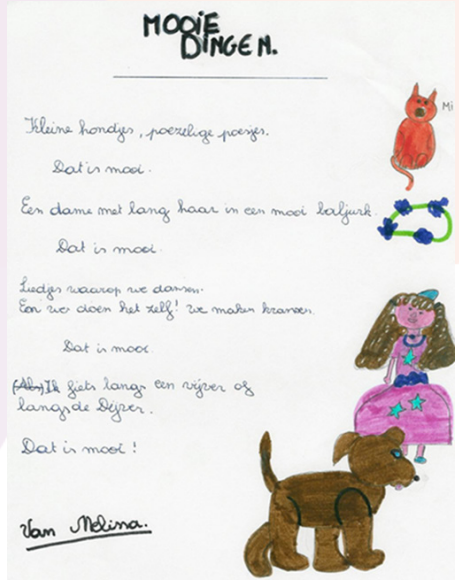 MOOIE
DINGEN.
Kleine hondjes, poezelige poesjes.
Mi
Dat is mooi.
Een dame met lang haar in een mooi baljurk.
Dat is mooi.
Liedjes waarop we dansen.
En we doen het zelf! We maken kransen.
Dat is mooi.
(Als) Ik fiets langs een vijver of
langs de Dijver.
Dat is mooi!
Van Melina.